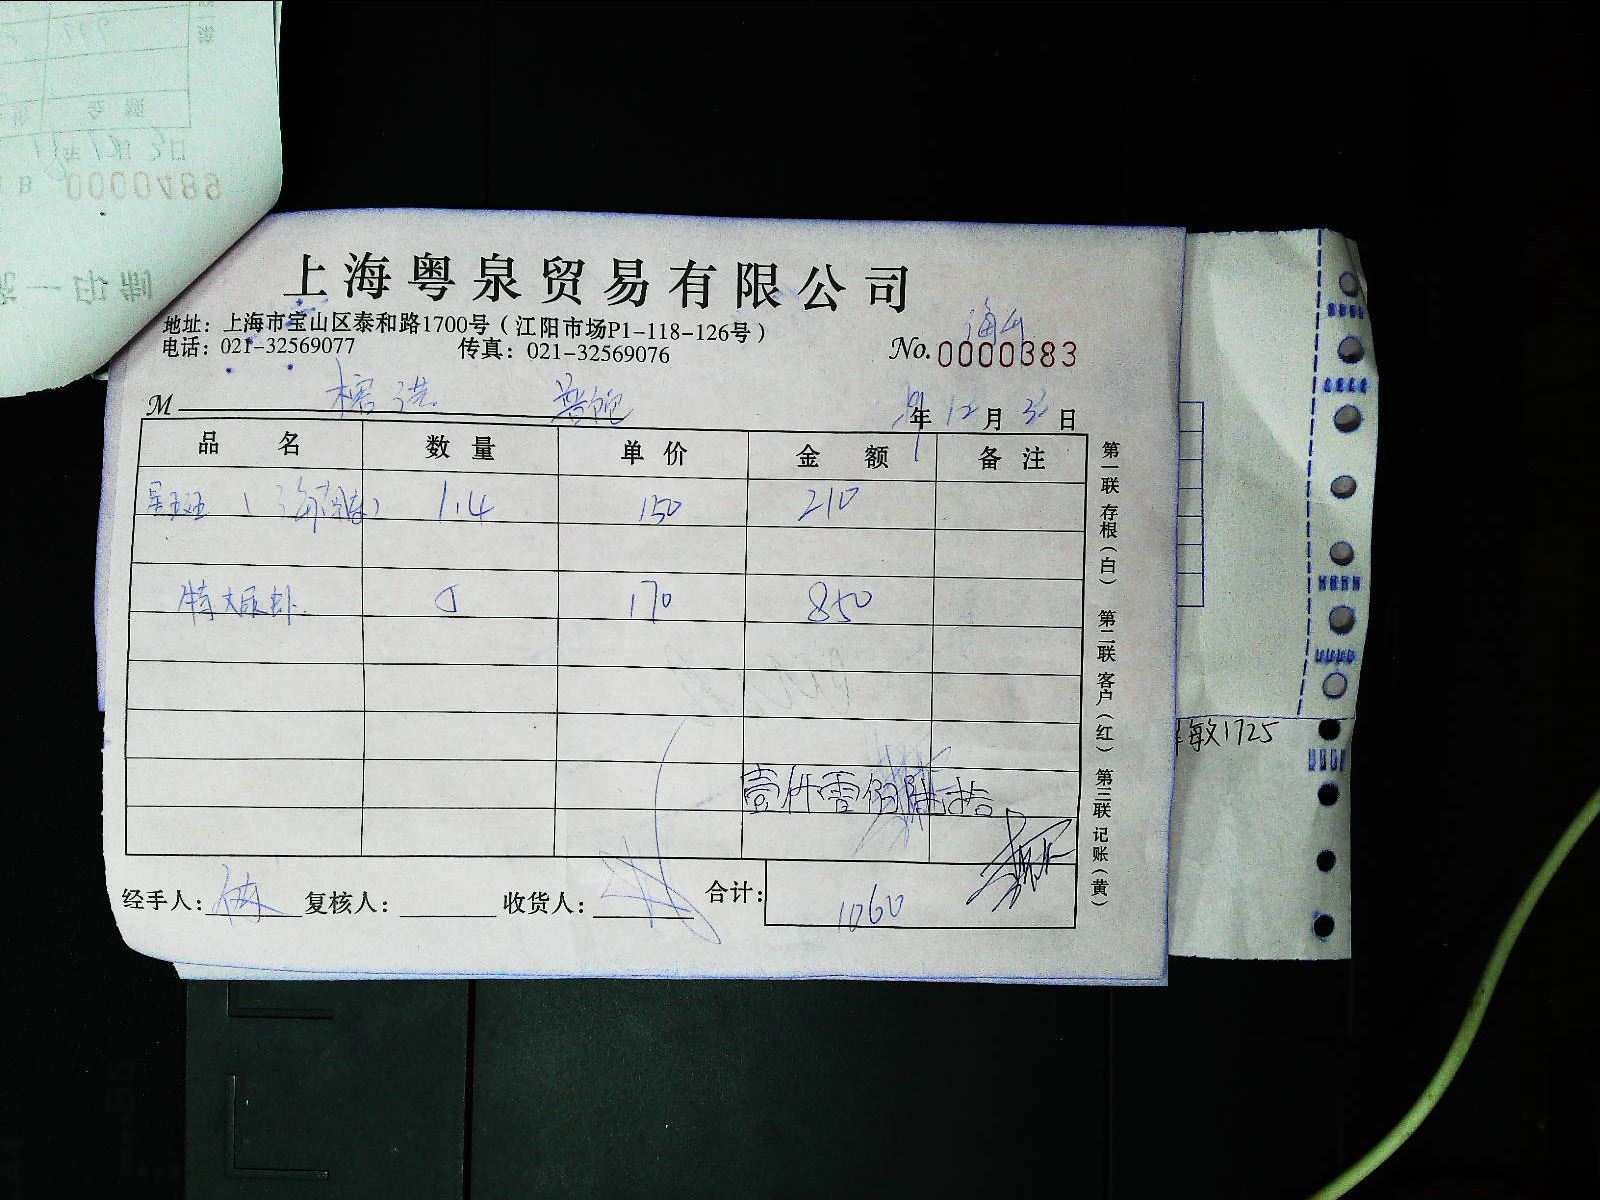 上海粤泉贸易有限公司
地址：上海市宝山区泰和路1700号（江阳市场P1-118-126号）
电话：021-32569077 传真：021-32569076
No. 0000383
M
年 12 月 日
品名 数量 单价 金额 备注
1.4 150 210
特大尿虾 5 170 850
壹仟零佰陆拾
经手人： 复核人： 收货人： 合计： 1060
第一联 存根（白） 第二联 客户（红） 第三联 记账（黄）
敏1725
0000489